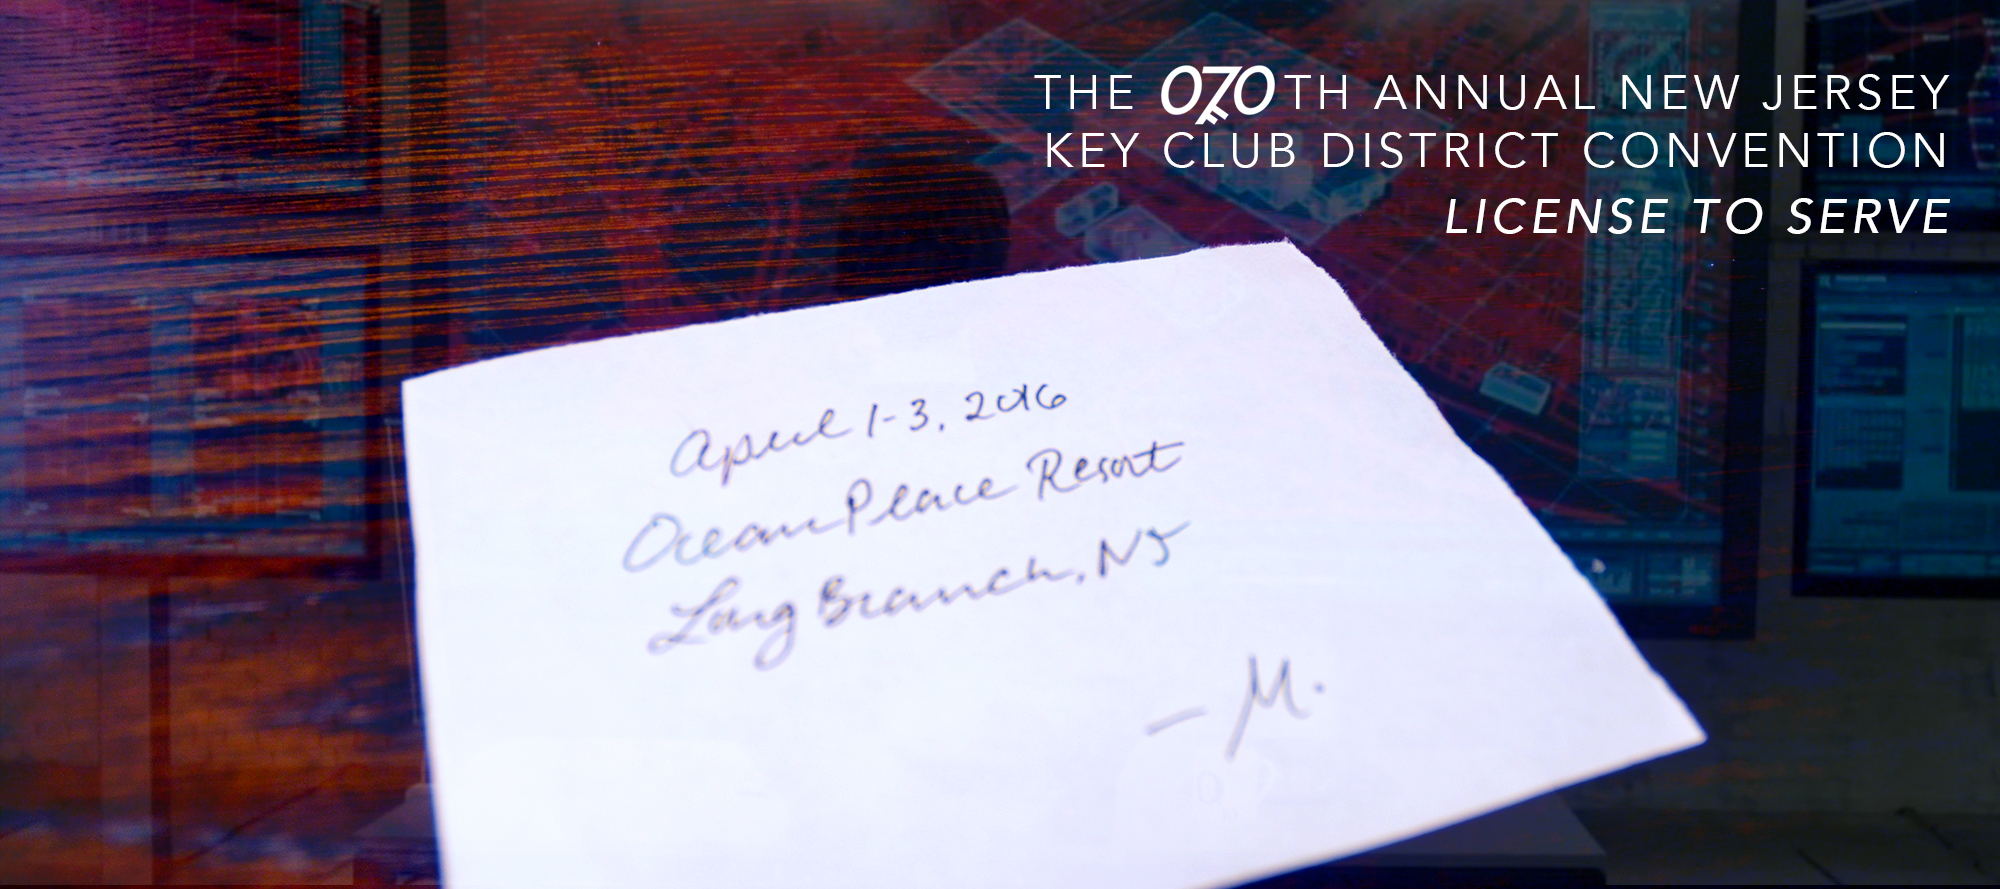 THE 070TH ANNUAL NEW JERSEY
KEY CLUB DISTRICT CONVENTION
LICENSE TO SERVE
April 1-3, 2016
Ocean Place Resort
Long Branch, NJ
- M.